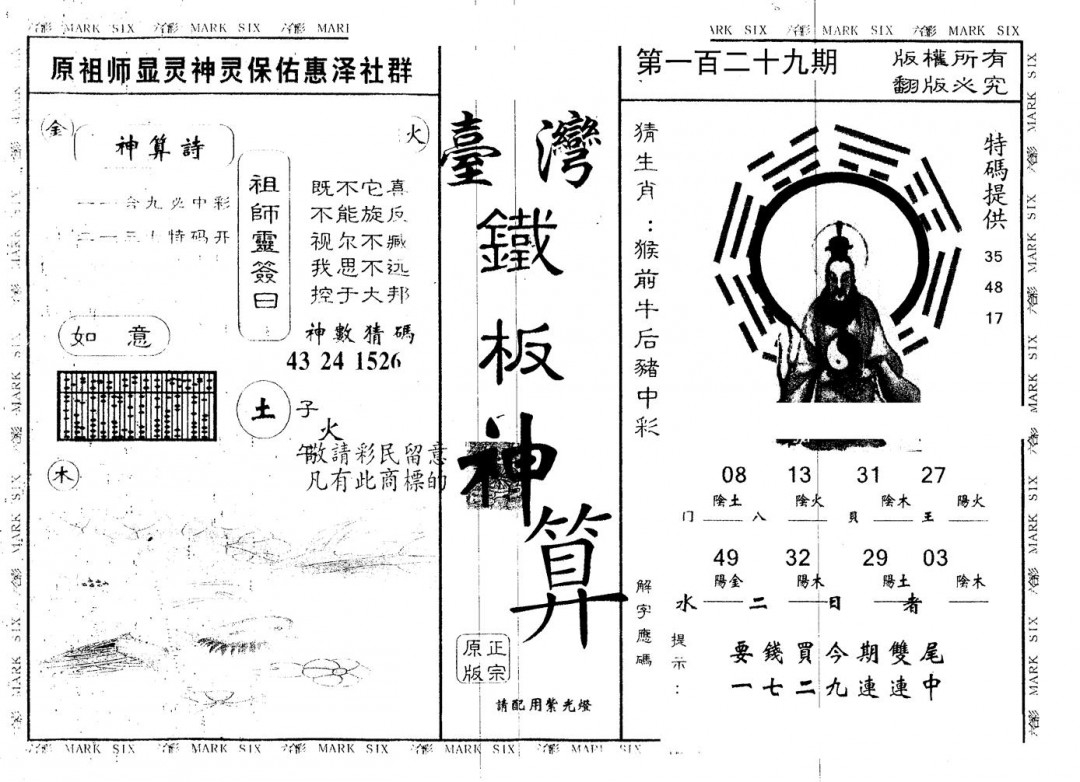 MARK SIX MARK SIX MARK SIX MARK SIX MARK SIX
原祖师显灵神灵保佑惠泽社群
金
神算詩
火
一一合九必中彩
特码开
祖師靈簽曰
既不它真
不能旋反
视尔不臧
我思不远
控于大邦
神數猜碼
43 24 1526
如意
土
子
火
午
敬請彩民留意
凡有此商標的
木
臺灣
鐵
板
神
算
正宗
原版
請配用紫光燈
第一百二十九期
版權所有
翻版必究
猜生肖：猴前牛后豬中彩
特碼提供
35
48
17
08 13 31 27
陰土 陰火 陰木 陽火
门 八 貝 王
49 32 29 03
陽金 陽木 陽土 陰木
水 二 日 者
解字應碼
提示：
要錢買今期雙尾
一七二九連連中
MARK SIX MARK SIX MARK SIX MARK SIX